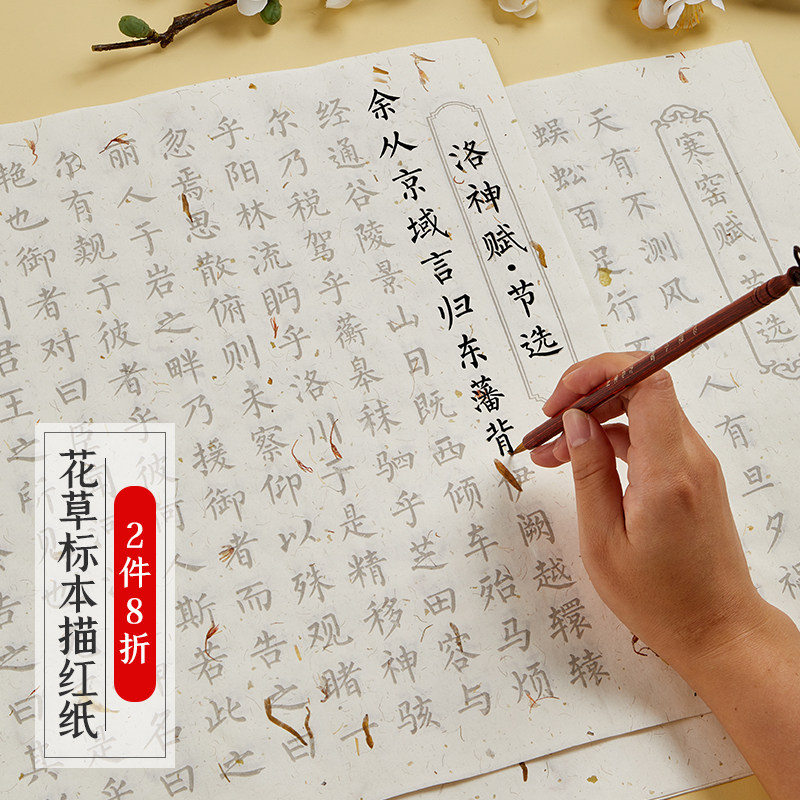 寒窑赋·节选
天有不测风
人有旦夕祸
蜈蚣百足行
洛神赋·节选
余从京域言归东藩背伊阙越轘辕
经通谷陵景山日既西倾车殆马烦
尔乃税驾乎蘅皋秣驷乎芝田容与
乎阳林流眄乎洛川于是精移神骇
忽焉思散俯则未察仰以殊观睹一
丽人于岩之畔乃援御者而告之曰
尔有觌于彼者乎彼何人斯若此之
艳也御者对曰
名曰
君王之所
是乎
告之曰其
花草标本描红纸
2件8折